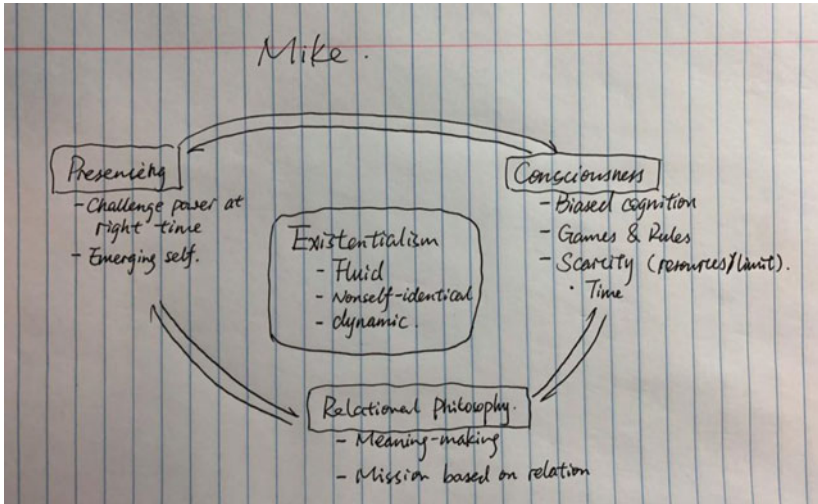 Mike.
Presencing
- Challenge power at
right time
- Emerging self.
Consciousness
- Biased cognition
- Games & Rules
- Scarcity (resources/limit).
· Time
Existentialism
- Fluid
- Nonself-identical
- dynamic.
Relational philosophy.
- Meaning-making
- Mission based on relation